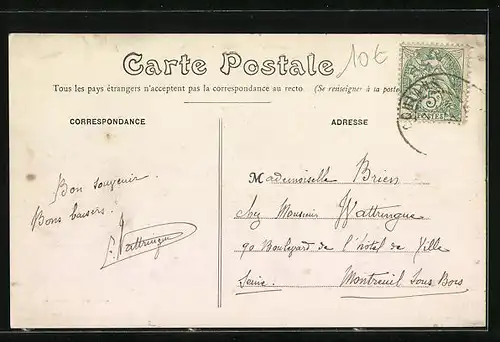 Carte Postale
10€
Tous les pays étrangers n'acceptent pas la correspondance au recto. (Se renseigner à la poste
CORRESPONDANCE
ADRESSE
5c
POSTES
Bon souvenir.
Bons baisers.
F. Wattringue
Mademoiselle Brien
Chez Monsieur Wattringue
90 Boulevard de l'hôtel de Ville
Montreuil Sous Bois
Seine.